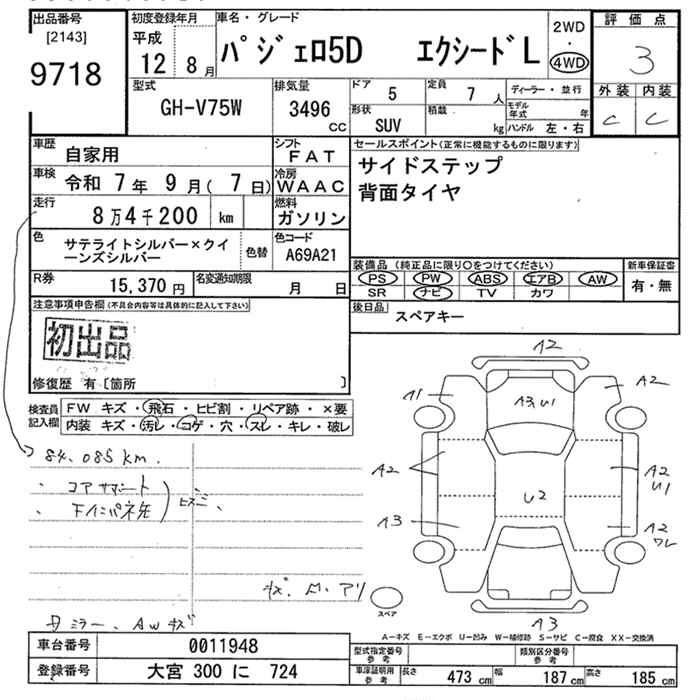 出品番号
[2143]
9718
初度登録年月
平成
12年 8月
車名・グレード
パジェロ5D エクシードL
2WD
・
4WD
評価点
3
外装 内装
C C
型式
GH-V75W
排気量
3496
CC
ドア 5
定員 7人
形状
SUV
積載
kg
ディーラー・並行
モデル年式 年
ハンドル 左・右
車歴
自家用
シフト
FAT
車検 令和 7年 9月( 7日)
冷房
WAAC
走行
8万4千200 km
燃料
ガソリン
色
サテライトシルバー×クイーンズシルバー
色替
色コード
A69A21
R券
15,370円
名変通知期限
月 日
セールスポイント(正常に機能するものに限ります)
サイドステップ
背面タイヤ
装備品(純正品に限り○をつけてください)
PS PW ABS エアB AW
SR ナビ TV カワ
新車保証書
有・無
後日品
スペアキー
注意事項申告欄(不具合内容等は具体的に記入して下さい)
初出品
修復歴 有〔箇所 〕
検査員記入欄
FW キズ・飛石・ヒビ割・リペア跡・×要
内装 キズ・汚レ・コゲ・穴・スレ・キレ・破レ
84,085km.
・コアサポート
・
キズ.
A2
A1
A2
A3,U1
A2
A2
U1
U2
A3
A2
ワレ
A3
スペア
ミラー、AWキズ
A-キズ E-エクボ U-凹み W-補修跡 S-サビ C-腐食 XX-交換済
車台番号
0011948
登録番号
大宮 300 に 724
型式指定番号
参考
類別区分番号
参考
車庫証明用
参考
長さ 473cm
幅 187cm
高さ 185cm